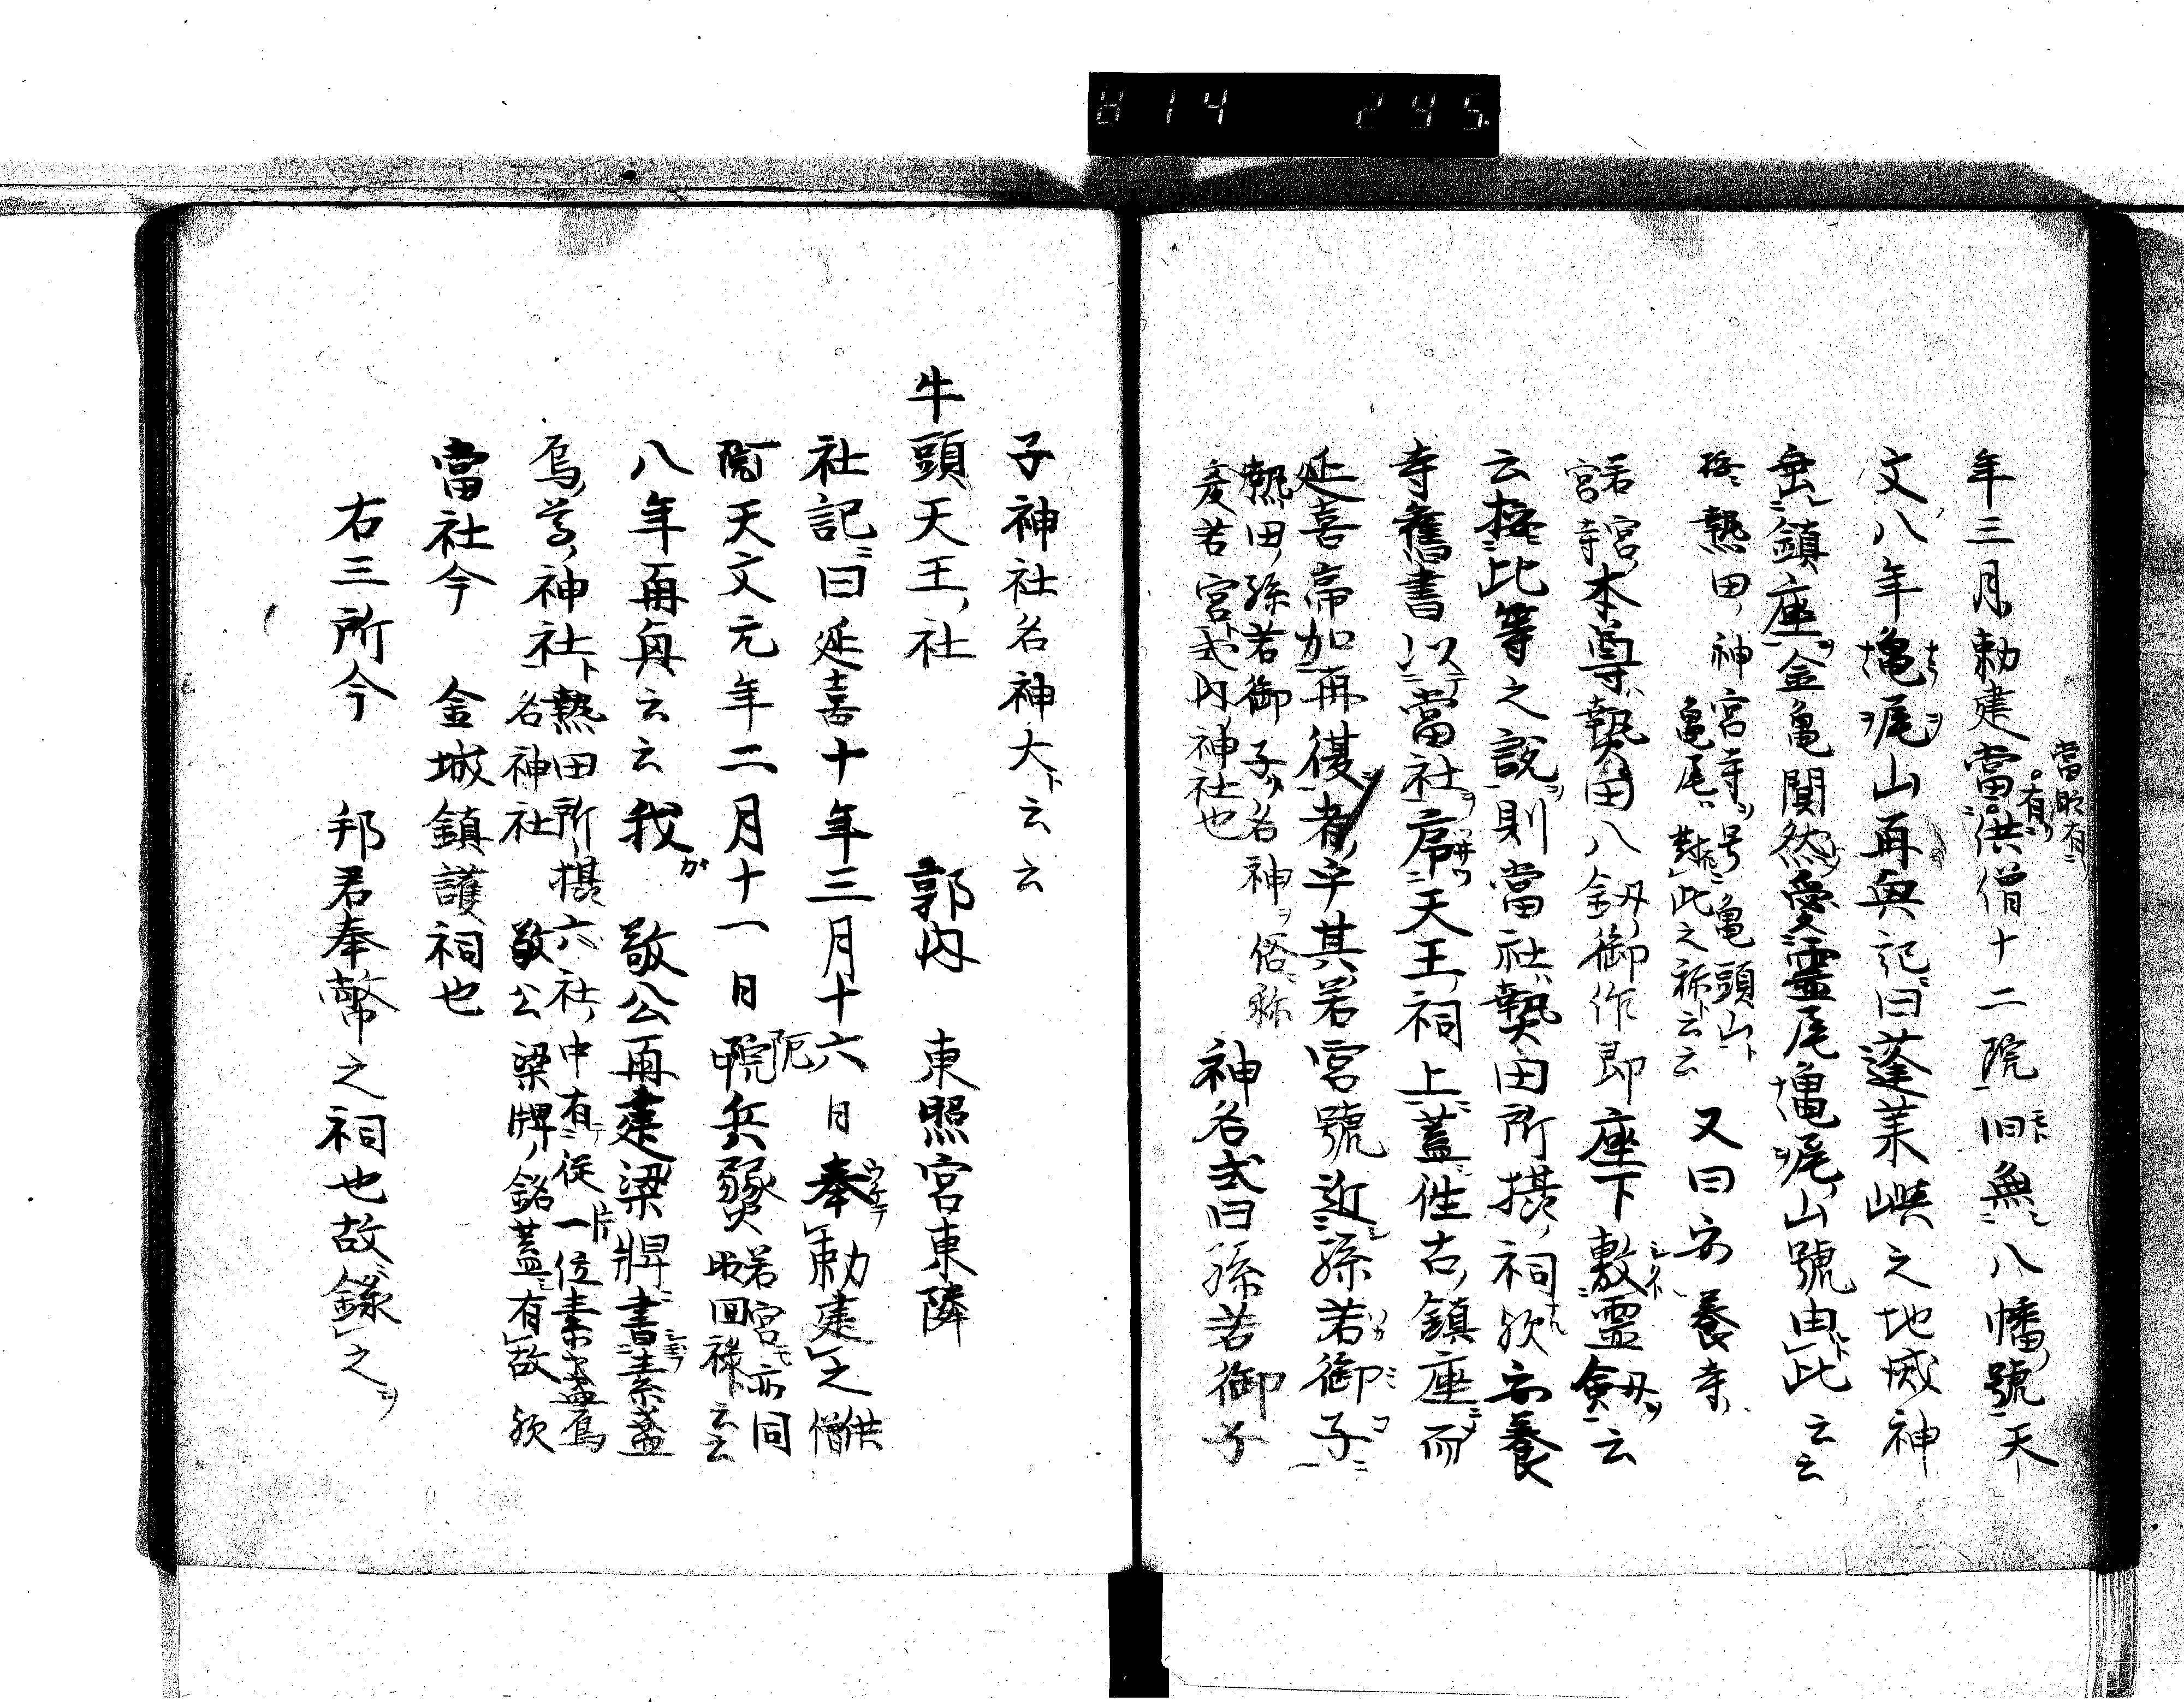 814 245
當時有
年三月勅建當有供僧十二院旧無八幡號天
文八年亀尾山再興記曰蓬莱嶼之地威神
岳鎮座金亀閴然愛靈尾亀尾山號由此云云
按熱田神宮寺号亀頭山ト
亀尾対此之称云云
又曰安養寺
若宮
宮寺
本尊熱田八釼御作即座下敷霊劔云
云按此等之説則當社熱田所摂祠欤安養
寺舊書以當社席天王祠上蓋往古鎮座而
延喜帝加再復者乎其若宮號近孫若御子
熱田孫若御子名神俗称
彦若宮式内神社也
神名式曰孫若御子
子神社名神大ト云云
牛頭天王社 郭内 東照宮東隣
社記曰延喜十年三月十六日奉勅建之
供
僧
院天文元年二月十一日
院
兵燹
若宮亦同
時回禄ト云云
八年再興云云我 敬公再建梁牌書素盞
烏尊神社
熱田所摂六社中有従一位素盞烏
名神社 敬公梁牌銘蓋有故欤
當社今 金城鎮護祠也
右三所今 邦君奉幣之祠也故錄之